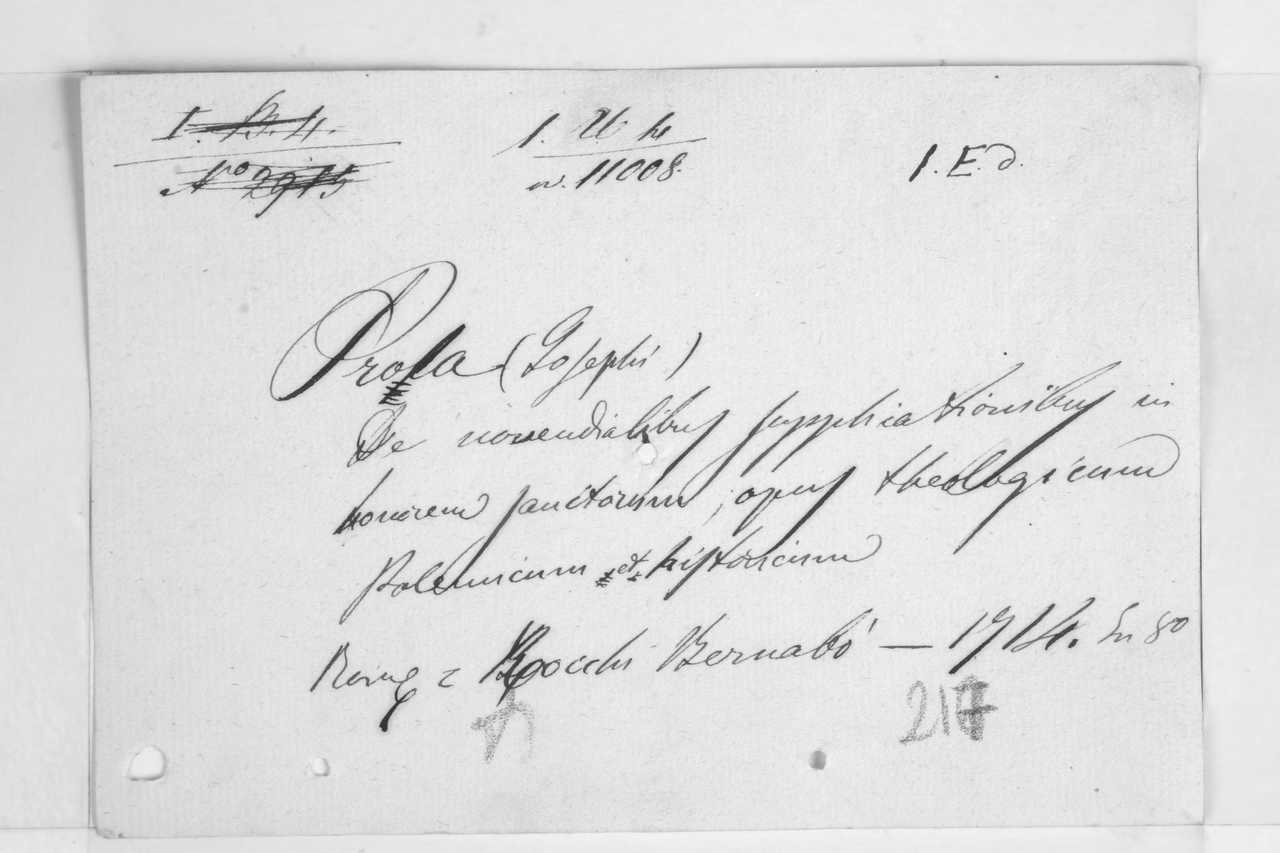 I. B. 4.
Nro 2915
1. 26 h
n. 11008.
1. E. d.
Prola (Josephi)
De novendialibus supplicationibus in
honorem sanctorum, opus theologicum
polemicum et historicum
Romę Rocchi Bernabó — 1714. In 8o
217